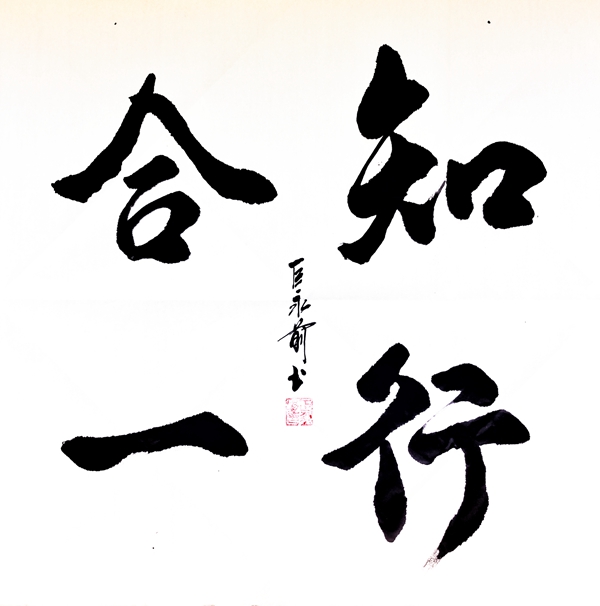 知行
合一
巨永前书